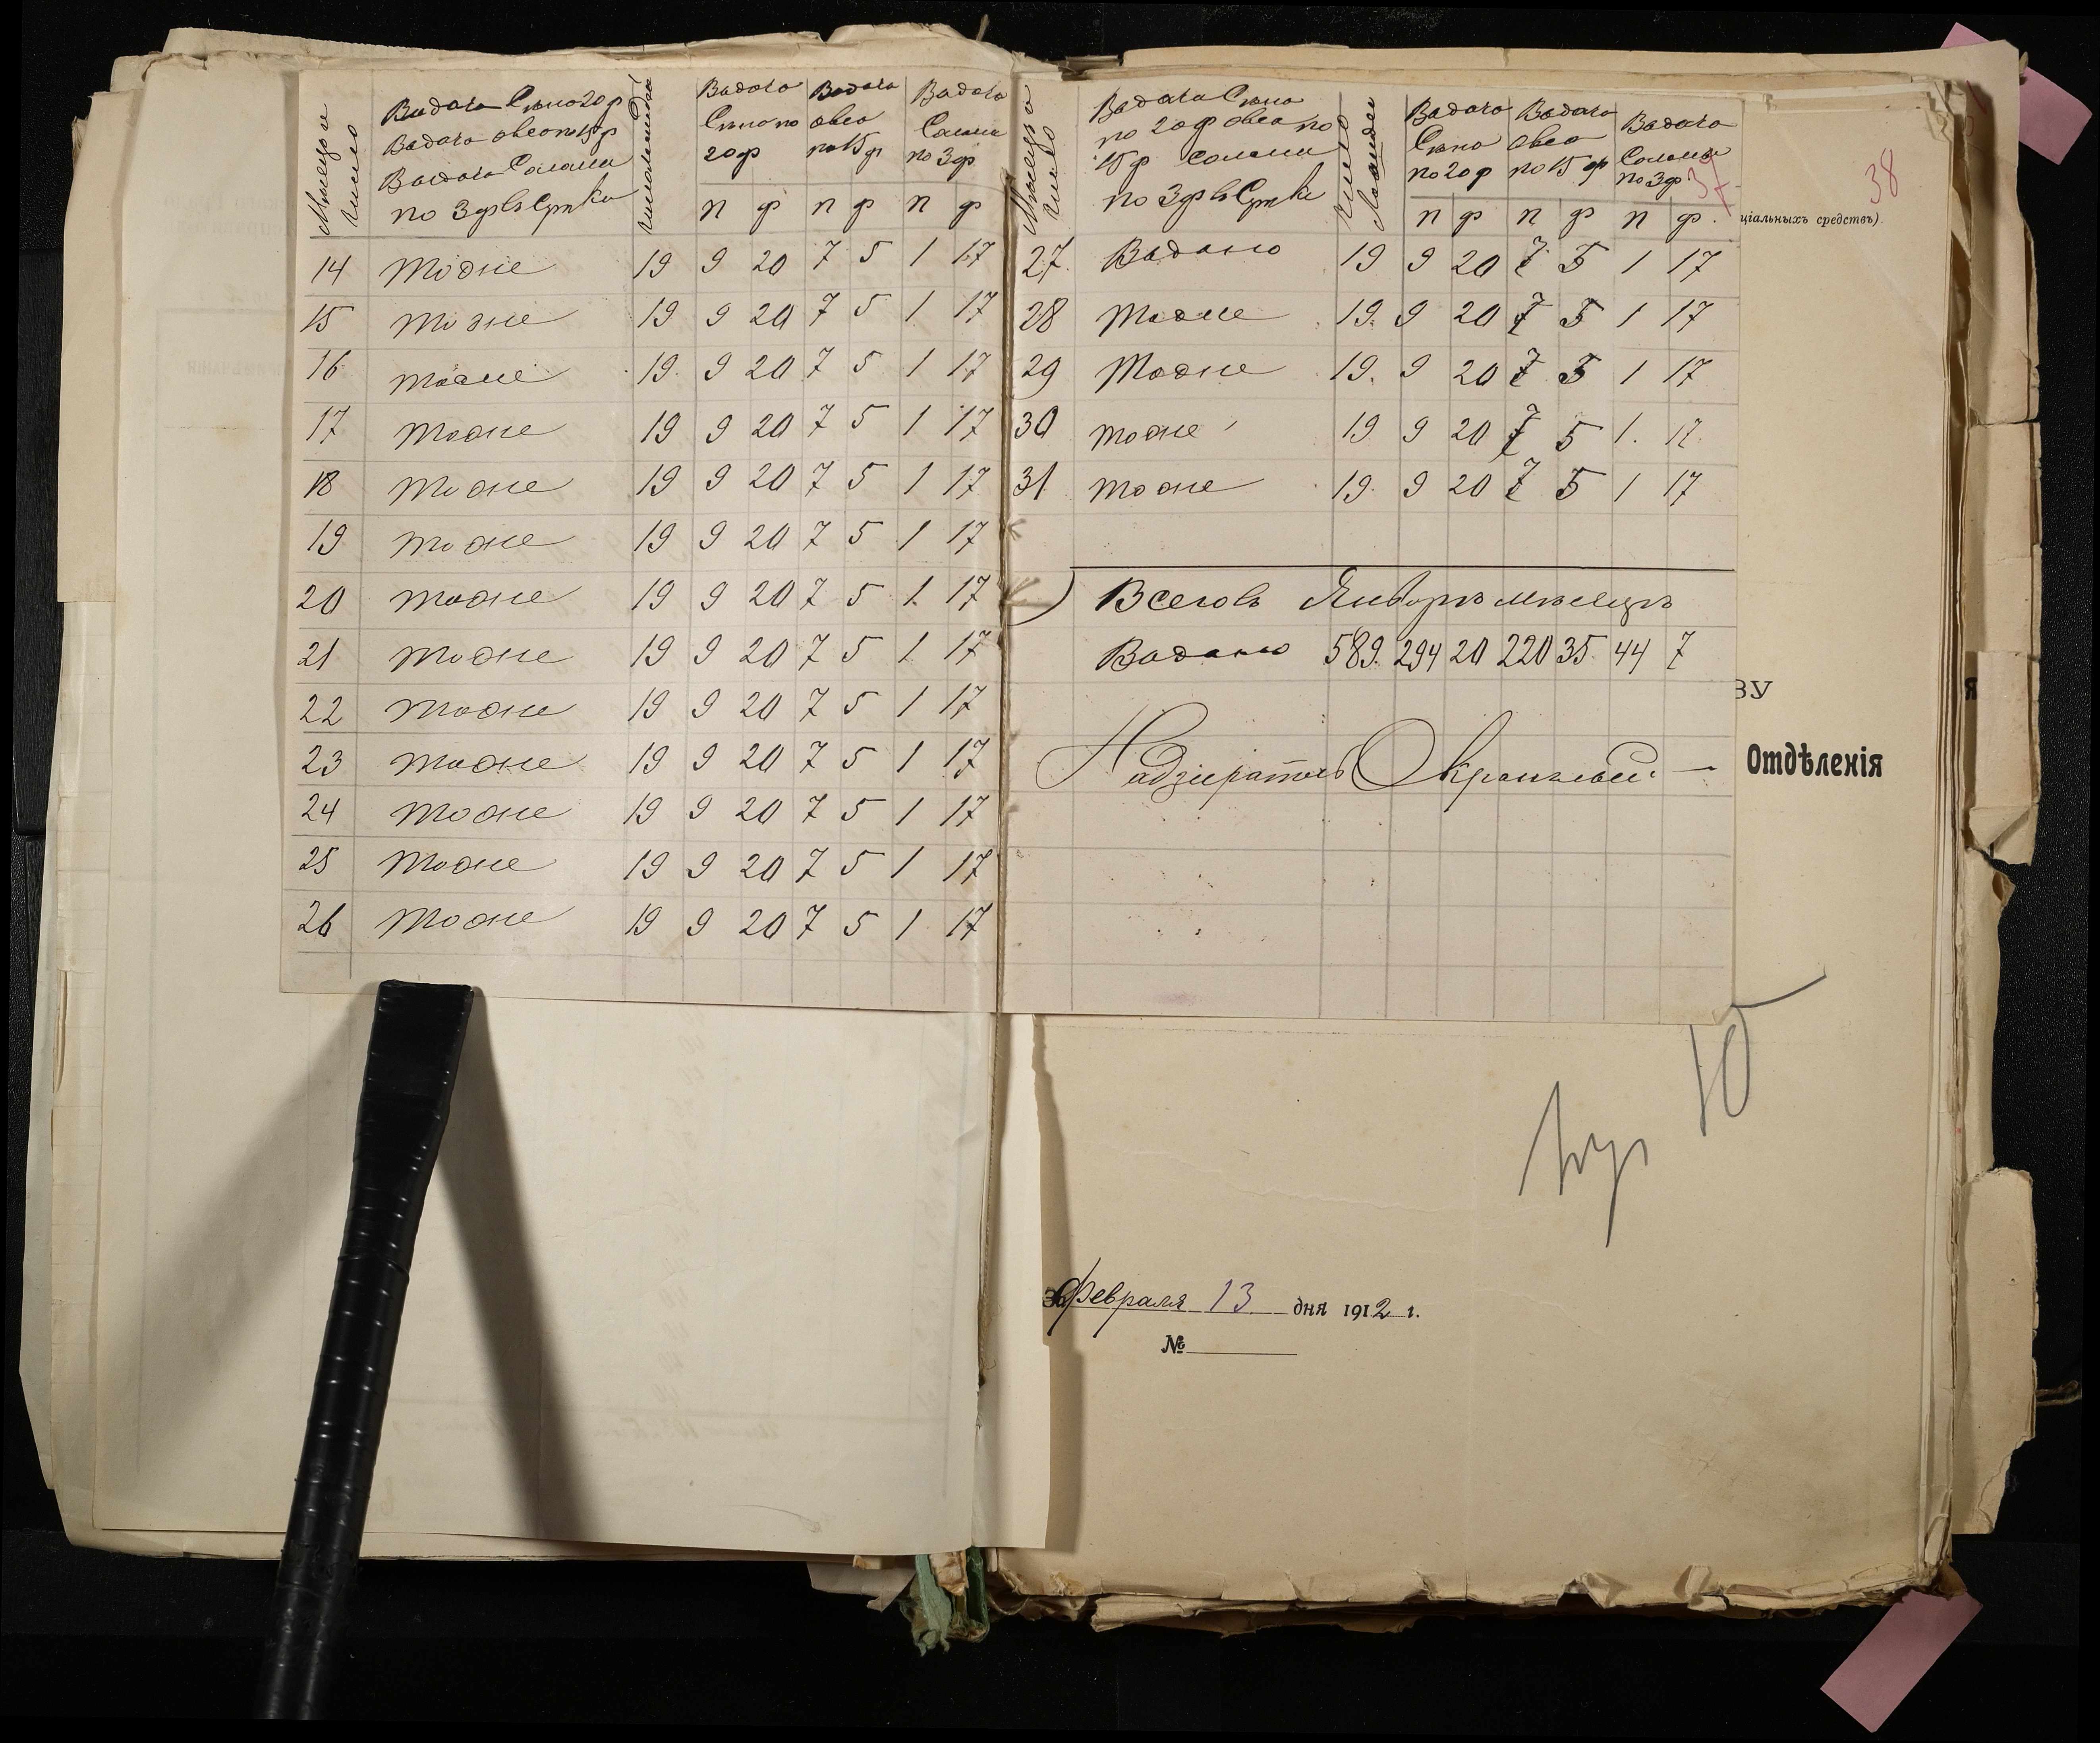 Мѣсяцъ и число
Видача Сѣна 20 ф
Видача овса по 15 ф
Видача Саломи
по 3 ф въ Сутки
число лошадей
Видача Сѣна по 20 ф
Видача овса по 15 ф
Видача Саломи по 3 ф
п ф п ф п ф
14 тоже 19 9 20 7 5 1 17
15 тоже 19 9 20 7 5 1 17
16 тоже 19 9 20 7 5 1 17
17 тоже 19 9 20 7 5 1 17
18 тоже 19 9 20 7 5 1 17
19 тоже 19 9 20 7 5 1 17
20 тоже 19 9 20 7 5 1 17
21 тоже 19 9 20 7 5 1 17
22 тоже 19 9 20 7 5 1 17
23 тоже 19 9 20 7 5 1 17
24 тоже 19 9 20 7 5 1 17
25 тоже 19 9 20 7 5 1 17
26 тоже 19 9 20 7 5 1 17
Мѣсяцъ и число
Видача Сѣна
по 20 ф овса по
15 ф Саломи
по 3 ф въ Сутки
число лошадей
Видача Сѣна по 20 ф
Видача Овса по 15 ф
Видача Саломи по 3 ф
37
38
п ф п ф п ф
ціальныхъ средствъ).
27 Видано 19 9 20 7 5 1 17
28 Тоже 19 9 20 7 5 1 17
29 Тоже 19 9 20 7 5 1 17
30 тоже 19 9 20 7 5 1 17
31 тоже 19 9 20 7 5 1 17
Всего въ Январѣ мѣсяцѣ
Видано 589 294 20 220 35 44 7
ВУ
Надзиратель
Отдѣленія
Февраля 13 дня 1912 г.
№